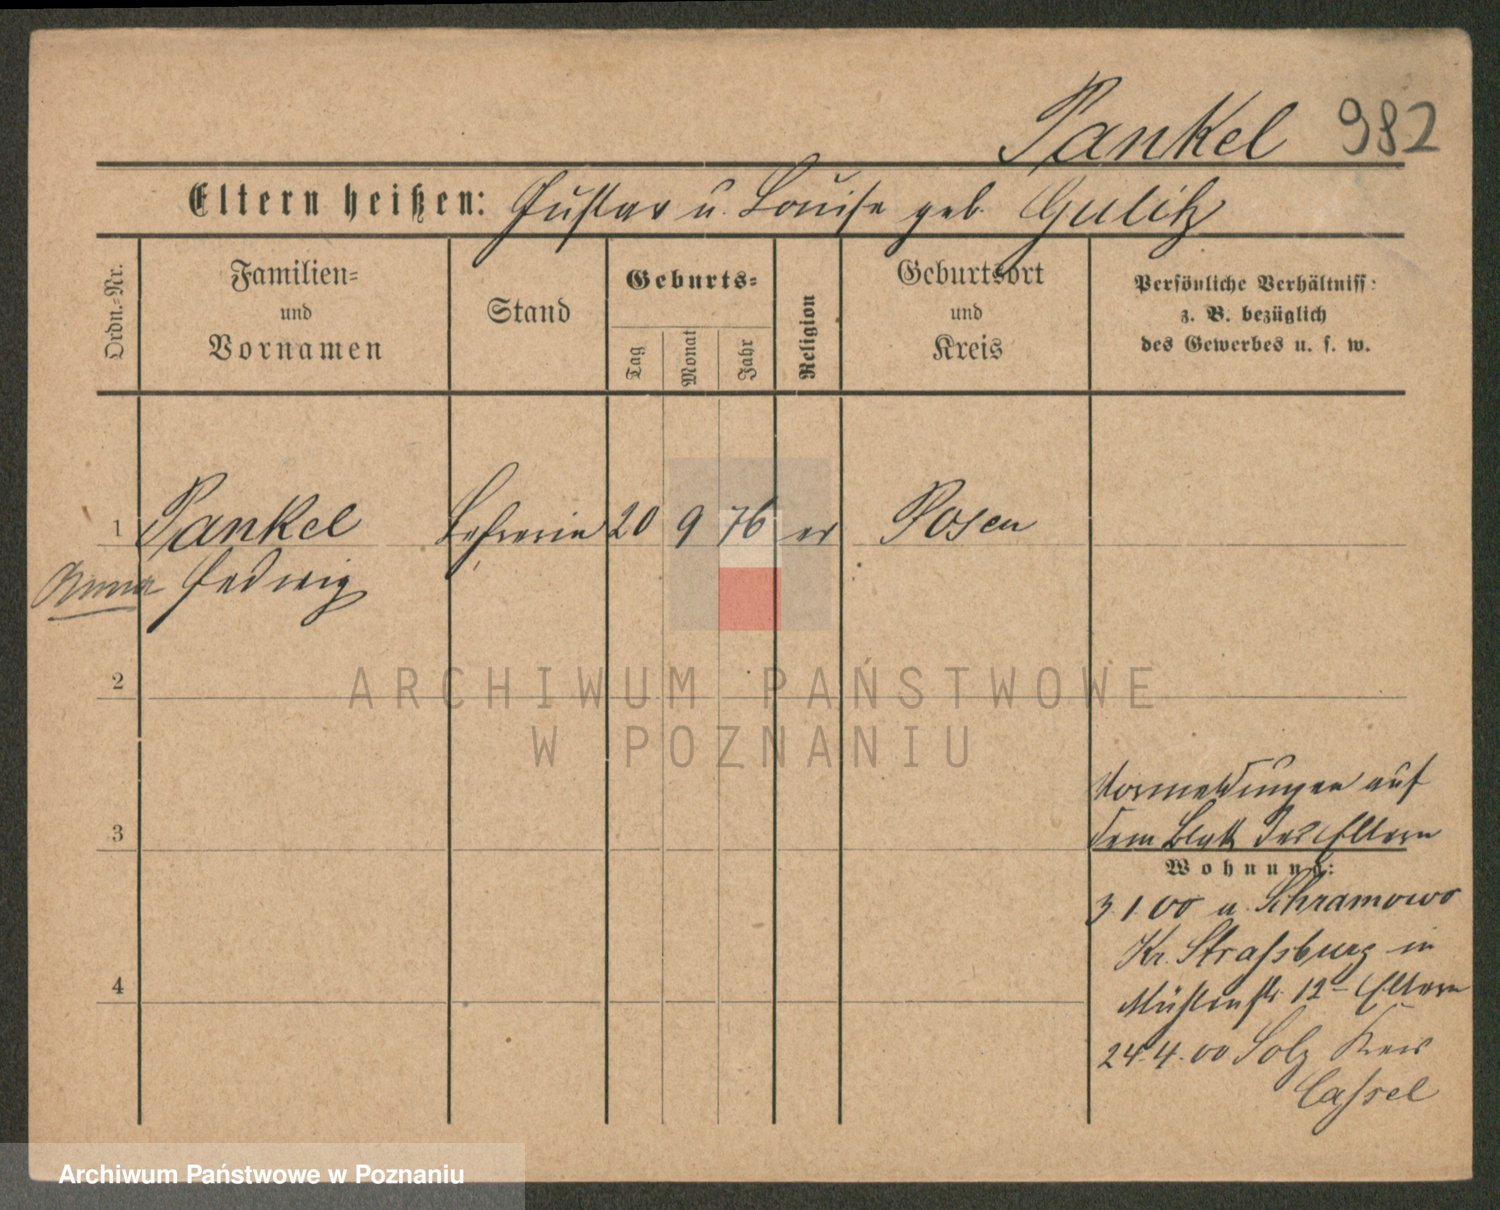 Pankel 982
Eltern heißen: Gustav u. Louise geb. Gulitz
Ordn.-Nr.
Familien-
und
Vornamen
Stand
Geburts-
Tag
Monat
Jahr
Religion
Geburtsort
und
Kreis
Persönliche Verhältniss:
z. B. bezüglich
des Gewerbes u. s. w.
1 Pankel Lehrerin 20 9 76 ev Posen
Anna Hedwig
2
ARCHIWUM PAŃSTWOWE
W POZNANIU
Vormeldungen auf
3 dem Blatt der Eltern
Wohnung:
3 1 00 u. Schramowo
Kr. Strassburg in
4 Mühlenstr. 12 Eltern
24.4.00 Solz Kreis
Cassel
Archiwum Państwowe w Poznaniu